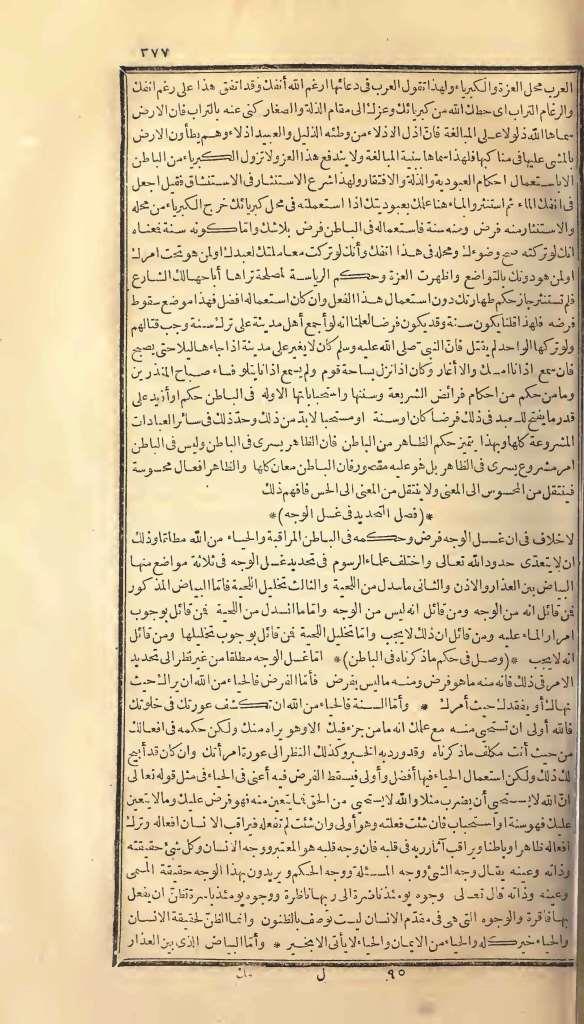 ٣٧٧
العرب محل العزة والكبرياء ولهذا تقول العرب فى دعائها ارغم الله أنفك وقد اتفق هذا على رغم انفك
والرغام التراب اى حطك الله من كبريائك وعزك الى مقام الذلة والصغار كنى عنه بالتراب فان الارض
سماها الله ذلولا على المبالغة فان اذل الاذلاء من وطئه الذليل والعبيد اذلاء وهم يطأون الارض
بالمشى عليها فى مناكبها فلهذا سماها ببنية المبالغة ولا يندفع هذا العز ولا تزول الكبرياء من الباطن
الا باستعمال احكام العبودية والذلة والافتقار ولهذا شرع الاستنثار فى الاستنشاق فقيل اجعل
فى انفك الماء ثم استنثر والماء هنا علمك بعبوديتك اذا استعملته فى محل كبريائك خرج الكبرياء من محله
والاستنثار منه فرض ومنه سنة فاستعماله فى الباطن فرض بلا شك واما كونه سنة فمعناه
انك لو تركته صح وضوءك ومحله فى هذا انك وأنك لو تركت معاملتك لعبدك او لمن هو تحت امرك
او لمن هو دونك بالتواضع واظهرت العزة وحكم الرياسة لمصلحة تراها أباحها لك الشارع
فلم تستنثر جاز حكم طهارتك دون استعمال هذا الفعل وان كان استعماله افضل فهذا موضع سقوط
فرضه فلهذا قلنا يكون سنة وقد يكون فرضا لعلمنا انه لو أجمع أهل مدينة على ترك سنة وجب قتالهم
ولو تركها الواحد لم يقتل فان النبى صلى الله عليه وسلم كان لا يغير على مدينة اذا جاءها ليلا حتى يصبح
فان سمع اذانا امسك والا أغار وكان اذا نزل بساحة قوم ولم يسمع اذانا يتلو فساء صباح المنذرين
وما من حكم من احكام فرائض الشريعة وسننها واستحباباتها الا وله فى الباطن حكم او أزيد على
قدر ما يفتح للعبد فى ذلك فرضا كان او سنة او مستحبا لا بد من ذلك وحد ذلك فى سائر العبادات
المشروعة كلها وبهذا يتميز حكم الظاهر من الباطن فان الظاهر يسرى فى الباطن وليس فى الباطن
امر مشروع يسرى فى الظاهر بل هو عليه مقصور فان الباطن معان كلها والظاهر افعال محسوسة
فينتقل من المحسوس الى المعنى ولا ينتقل من المعنى الى الحس فافهم ذلك
*(فصل التحديد فى غسل الوجه)*
لا خلاف فى ان غسل الوجه فرض وحكمه فى الباطن المراقبة والحياء من الله مطلقا وذلك
ان لا يتعدى حدود الله تعالى واختلف علماء الرسوم فى تحديد غسل الوجه فى ثلاثة مواضع منها
البياض بين العذار والاذن والثانى ما سدل من اللحية والثالث تخليل اللحية فاما البياض المذكور
فمن قائل انه من الوجه ومن قائل انه ليس من الوجه واما ما انسدل من اللحية فمن قائل بوجوب
امرار الماء عليه ومن قائل ان ذلك لا يجب واما تخليل اللحية فمن قائل بوجوب تخليلها ومن قائل
انه لا يجب *(وصل فى حكم ما ذكرناه فى الباطن)* اما غسل الوجه مطلقا من غير نظر الى تحديد
الامر فى ذلك فانه منه ما هو فرض ومنه ما ليس بفرض فأما الفرض فالحياء من الله ان يراك حيث
نهاك أو يفقدك حيث أمرك * وأما السنة فالحياء من الله ان تكشف عورتك فى خلوتك
فالله أولى ان تستحي منه مع علمك انه ما من جزء فيك الا وهو يراه منك ولكن حكمه فى افعالك
من حيث أنت مكلف ما ذكرناه وقد ورد به الخبر وكذلك النظر الى عورة امرأتك وان كان قد أبيح
لك ذلك ولكن استعمال الحياء فيها أفضل وأولى فيسقط الفرض فيه أعنى فى الحياء فى مثل قوله تعالى
ان الله لا يستحيي أن يضرب مثلا والله لا يستحي من الحق فما يتعين منه فهو فرض عليك وما لا يتعين
عليك فهو سنة او استحباب فان شئت فعلته وهو أولى وان شئت لم تفعله فيراقب الانسان افعاله وترك
افعاله ظاهرا وباطنا ويراقب آثار ربه فى قلبه فان وجه قلبه هو المعتبر ووجه الانسان وكل شئ حقيقته
وذاته وعينه يقال وجه الشئ ووجه المسئلة ووجه الحكم ويريدون بهذا الوجه حقيقة المسمى
وعينه وذاته قال تعالى وجوه يومئذ ناضرة الى ربها ناظرة ووجوه يومئذ باسرة تظن ان يفعل
بها فاقرة والوجوه التى هى فى مقدم الانسان ليست توصف بالظنون وانما الظن لحقيقة الانسان
والحياء خير كله والحياء من الايمان والحياء لا يأتى الا بخير * وأما البياض الذى بين العذار
٩٥ ل مك